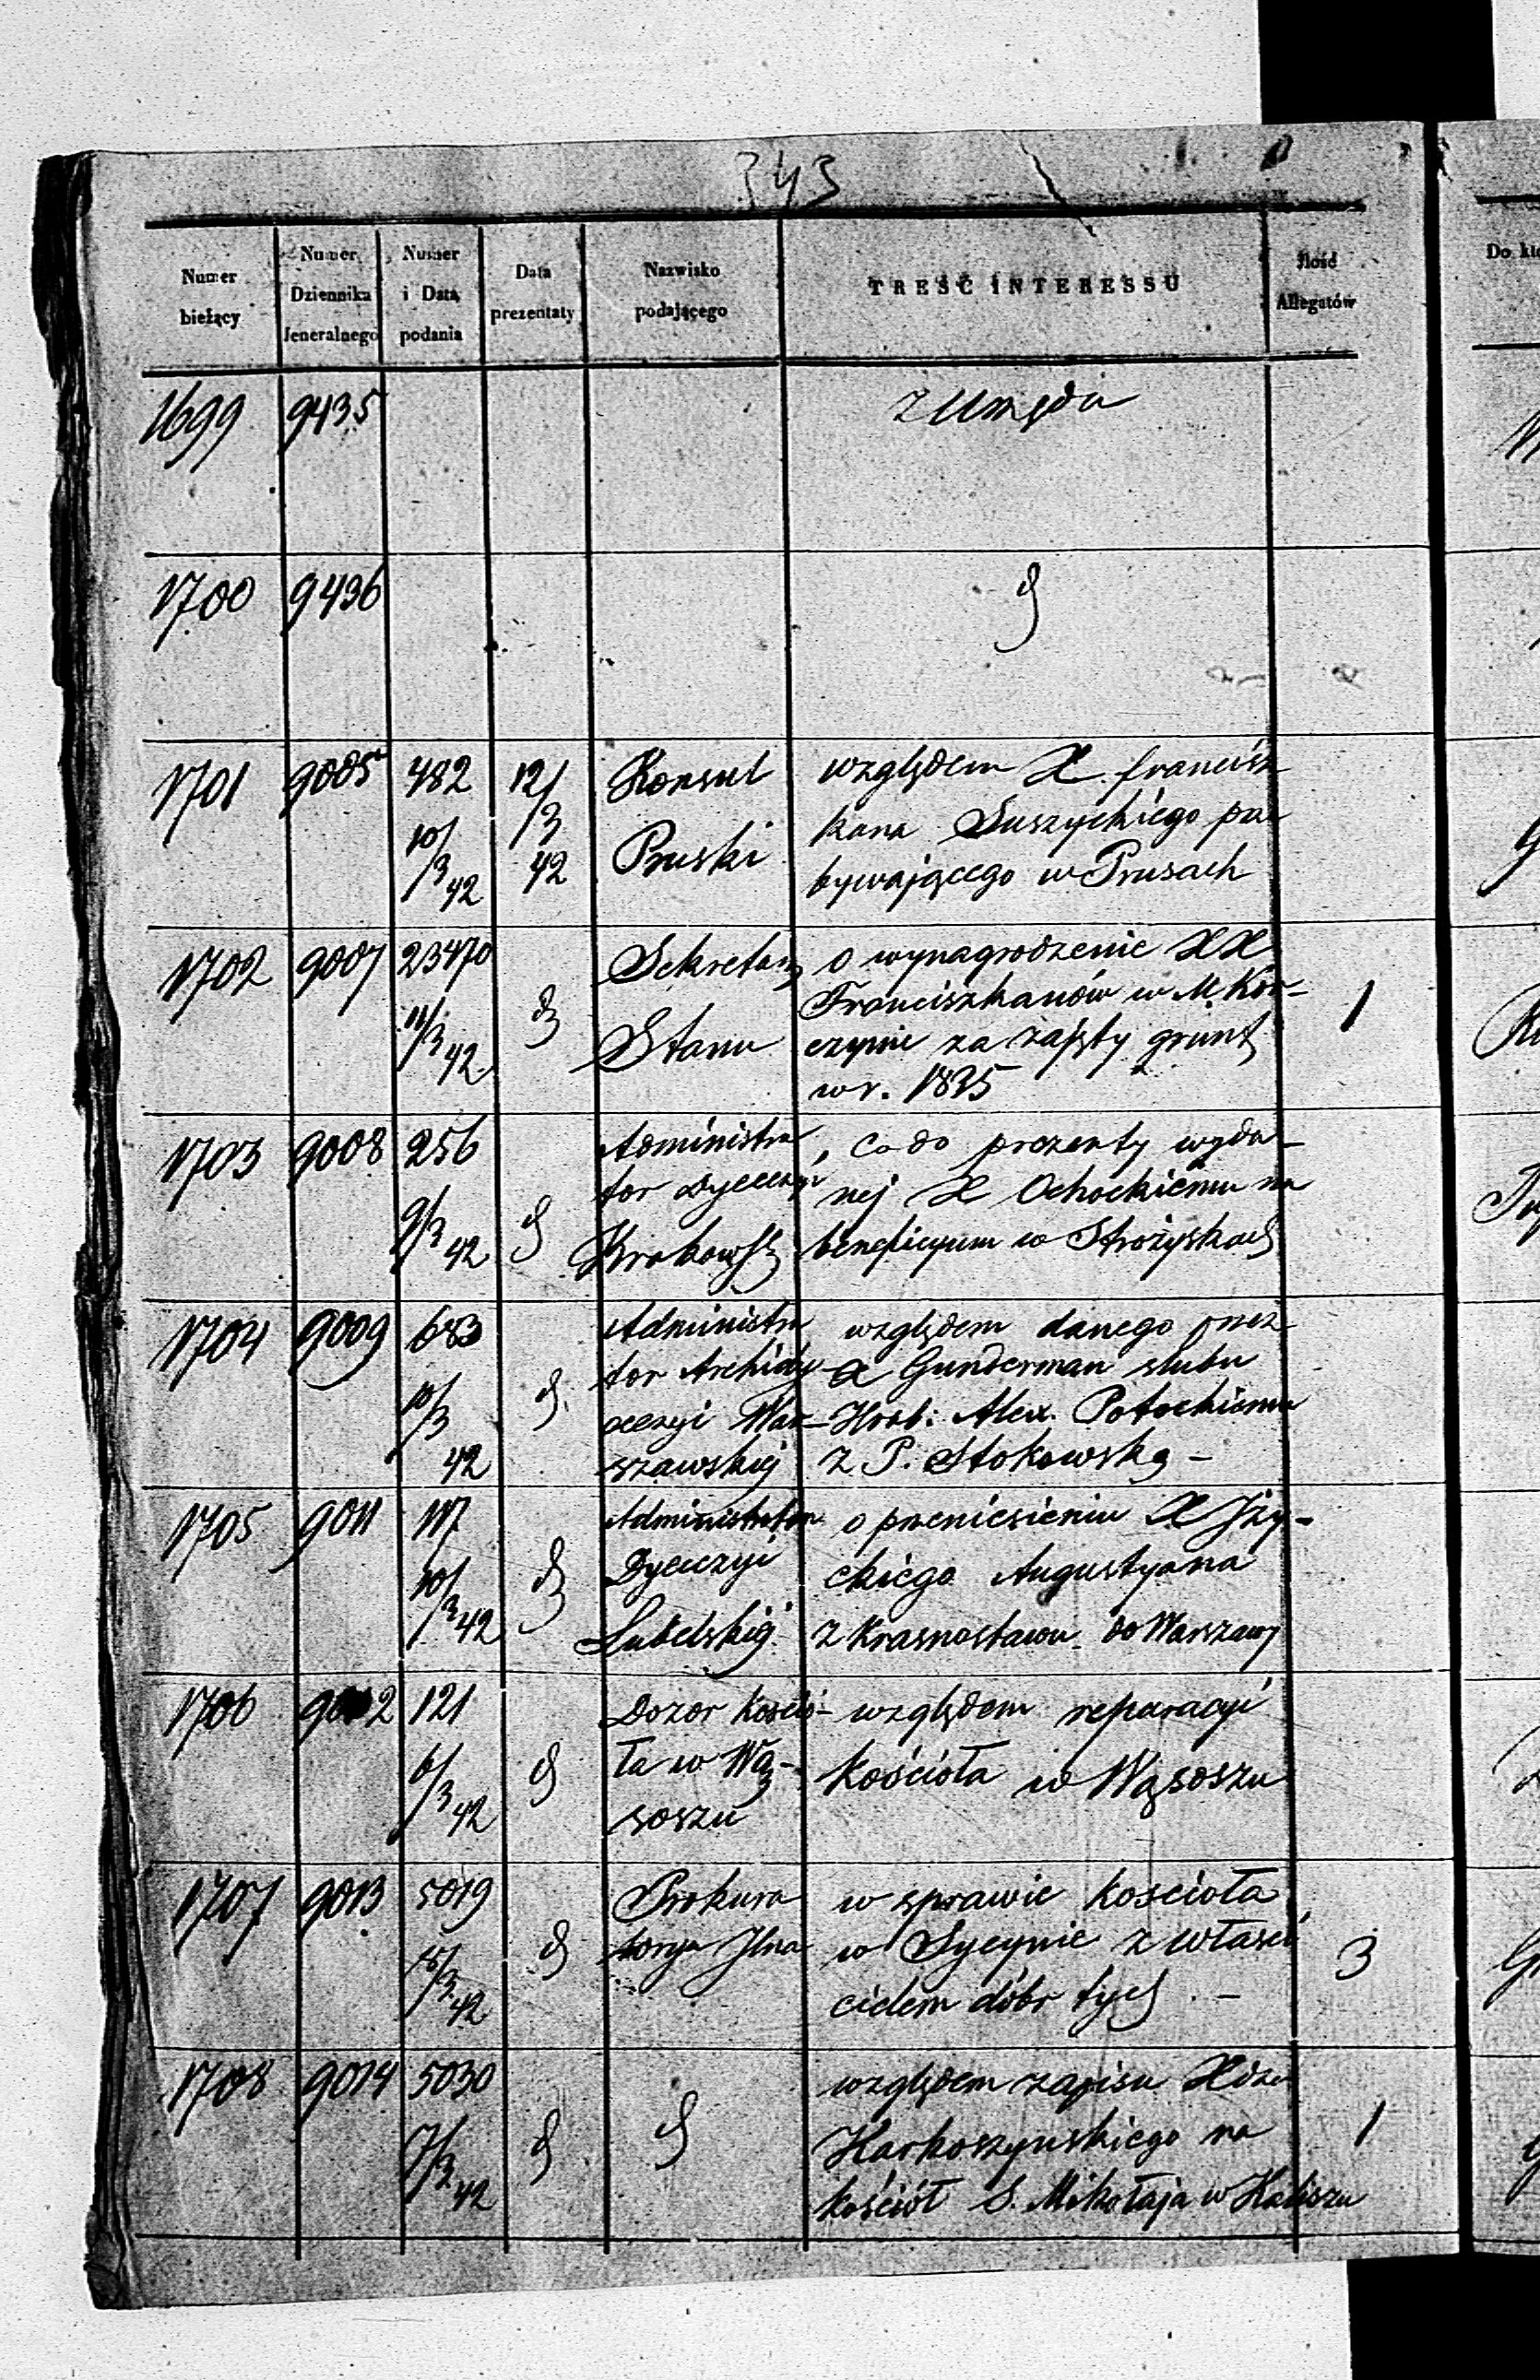 343
Numer bieżący
Numer Dziennika Jeneralnego
Numer i Data podania
Data prezentaty
Nazwisko podającego
TREŚĆ INTERESSU
Ilość Allegatów
1699 9435 z Urzędu
1700 9436
1701 9005 482 10/3 42 12/3 42
Konsul
Pruski
względem X. francisz
kana Suszyckiego prze
bywającego w Prusach
1702 9007 23470 11/3 42
Sekretarz
Stanu
o wynagrodzenie XX
Franciszkanów w M. Kor-
czynie za zajęty grunt
w r. 1835
1
1703 9008 256 9/3 42
Administra
tor Dyecezyi
Krakowsk
co do prezenty wyda-
nej X Ochockiemu na
beneficyum w Strożyskach
1704 9009 683 10/3 42
Administra
tor Archidy
ecezyi War-
szawskiej
względem danego przez
X Gunderman slubu
Hrab: Alex. Potockiemu
z P. Stokowską -
1705 9011 117 10/3 42
Administrator
Dyecezyi
Lubelskiej
o przeniesieniu X Jży-
ckiego Augustyana
z Krasnostawu do Warszawy
1706 9012 121 6/3 42
Dozor Kościo-
ła w Wą-
soszu
względem reparacyi
Kościoła w Wąsoszu
1707 9013 5019 /3 42
Prokura
torya Jlna
w sprawie Kościoła
w Sycynie z własci
cielem dóbr tych -
3
1708 9014 5030 7/3 42
względem zapisu Xdza
Karkoszynskiego na
kościół S. Mikołaja w Kaliszu
1
Do